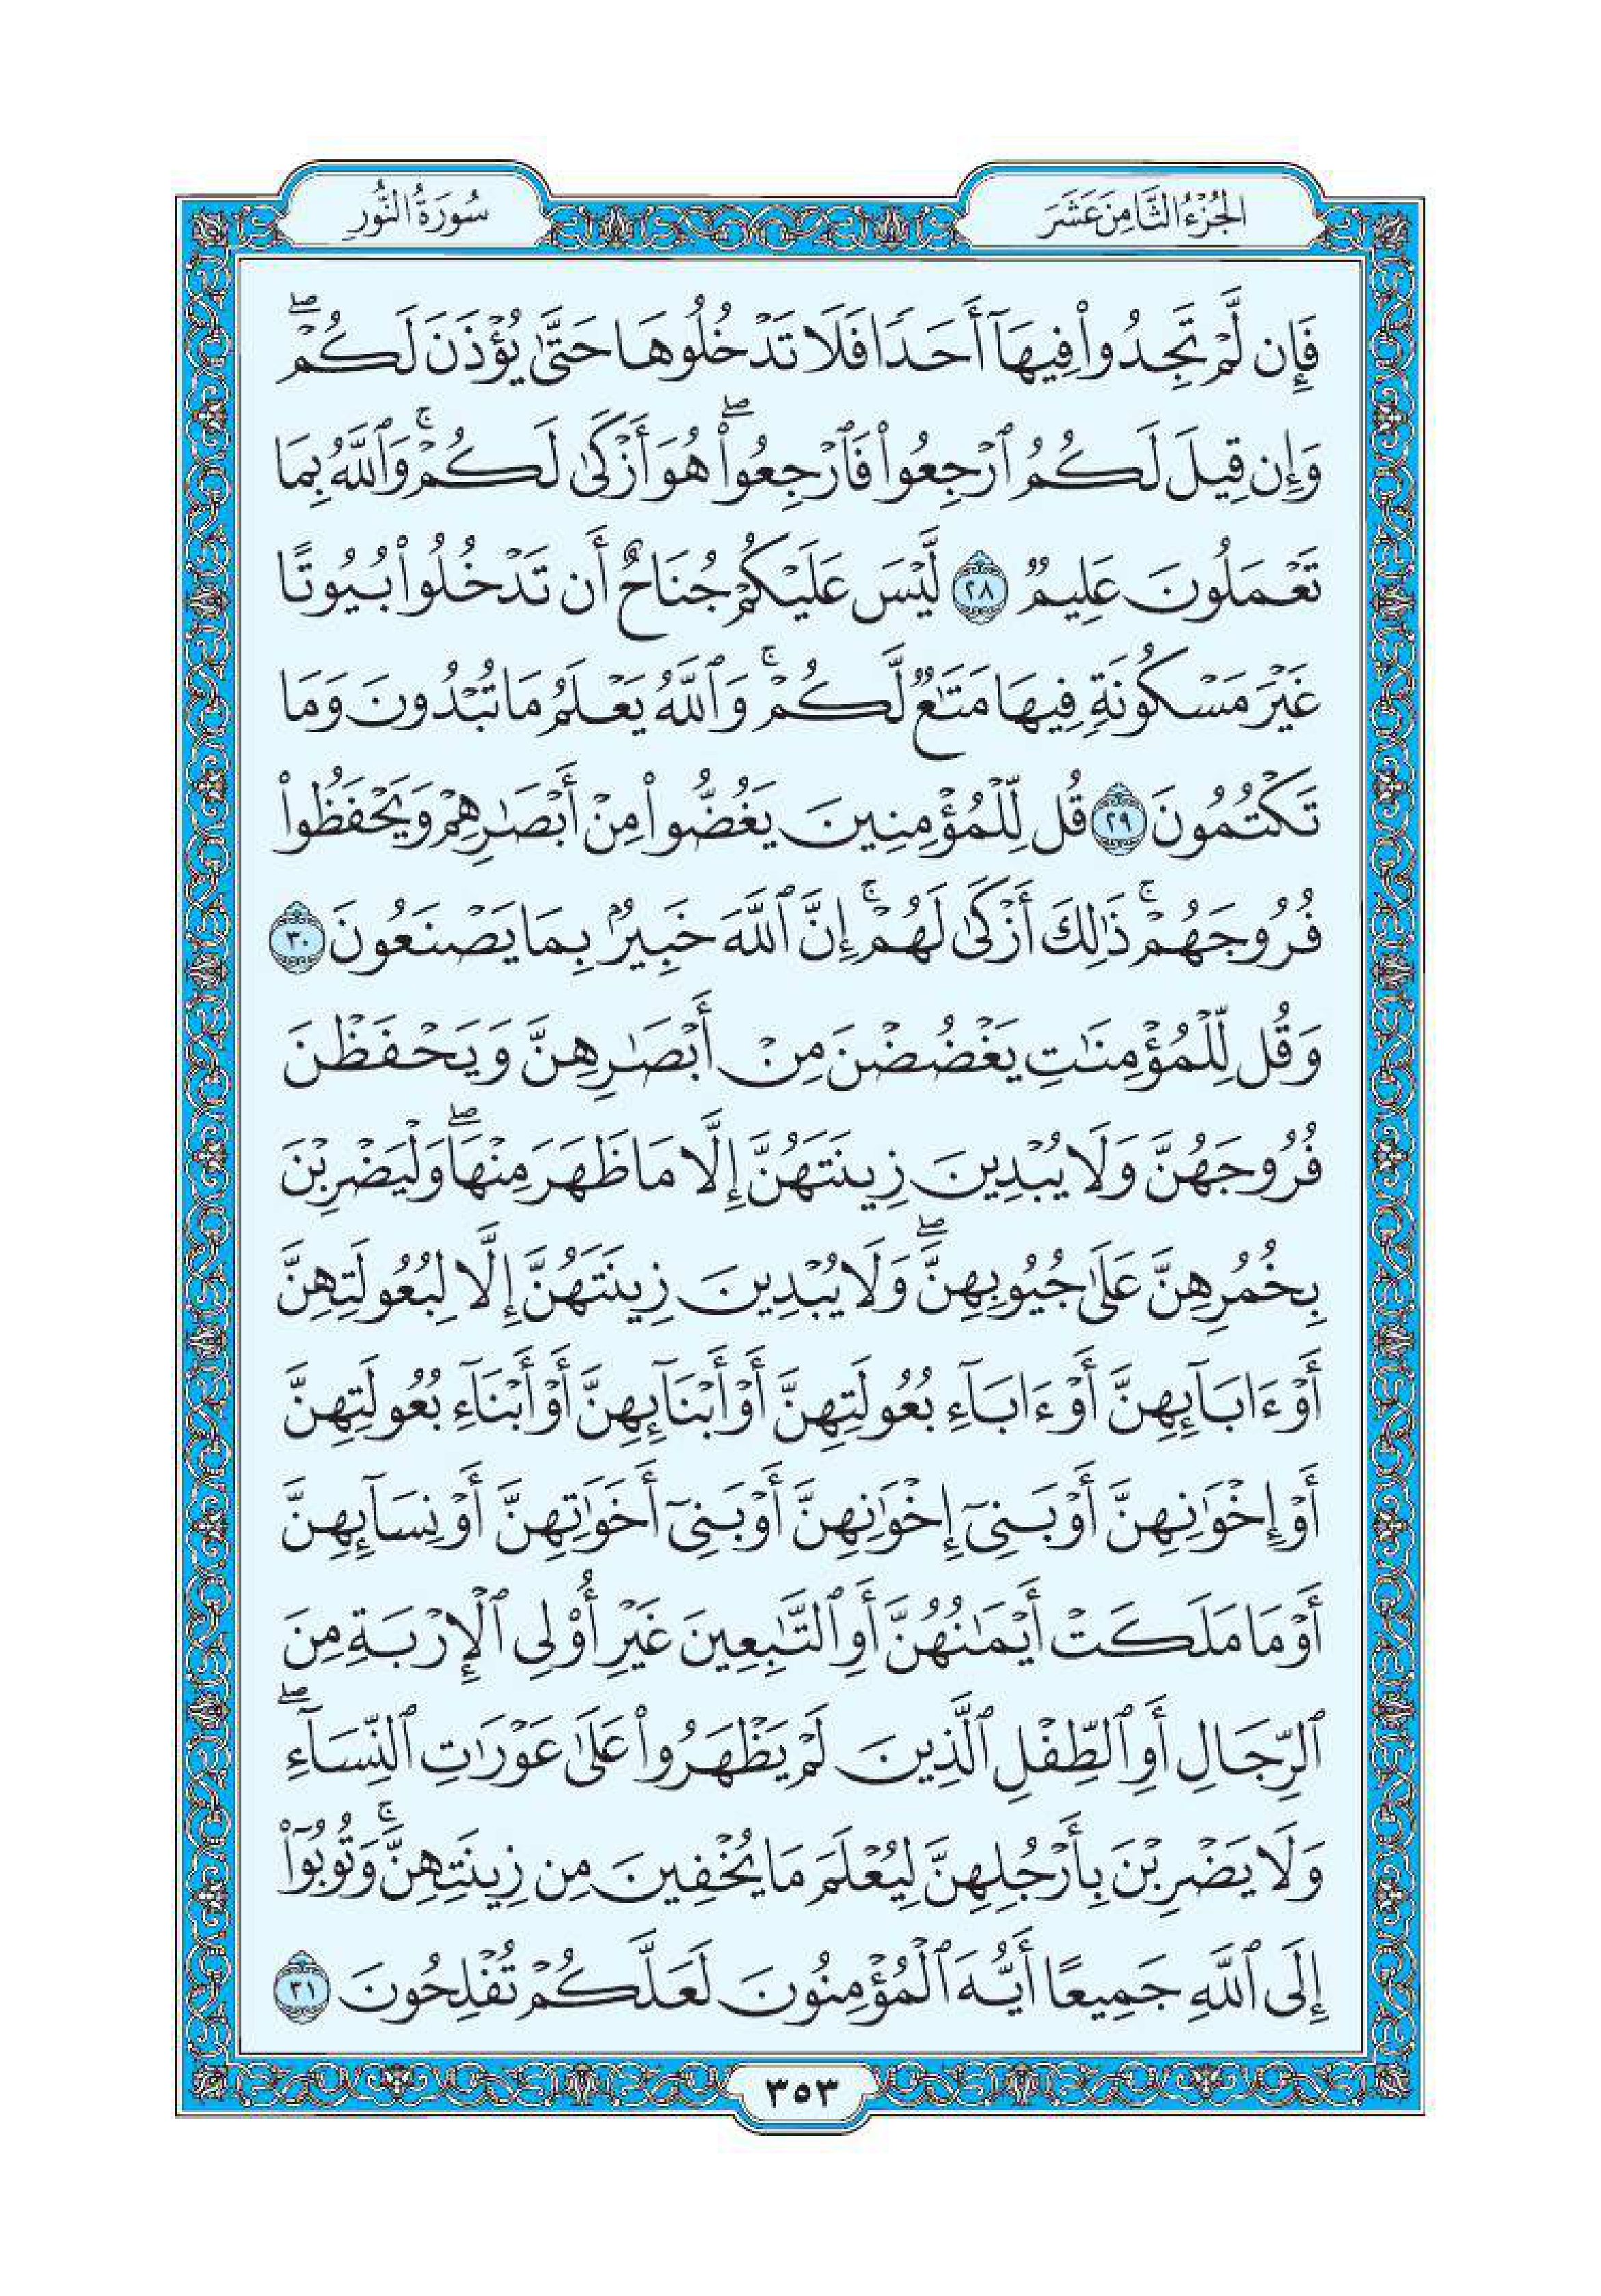 الجُزْءُ الثَّامِنَ عَشَرَ
سُورَةُ النُّور
فَإِن لَّمْ تَجِدُوا۟ فِيهَآ أَحَدًا فَلَا تَدْخُلُوهَا حَتَّىٰ يُؤْذَنَ لَكُمْ ۖ
وَإِن قِيلَ لَكُمُ ٱرْجِعُوا۟ فَٱرْجِعُوا۟ ۖ هُوَ أَزْكَىٰ لَكُمْ ۚ وَٱللَّهُ بِمَا
تَعْمَلُونَ عَلِيمٌ ٢٨ لَّيْسَ عَلَيْكُمْ جُنَاحٌ أَن تَدْخُلُوا۟ بُيُوتًا
غَيْرَ مَسْكُونَةٍ فِيهَا مَتَٰعٌ لَّكُمْ ۚ وَٱللَّهُ يَعْلَمُ مَا تُبْدُونَ وَمَا
تَكْتُمُونَ ٢٩ قُل لِّلْمُؤْمِنِينَ يَغُضُّوا۟ مِنْ أَبْصَٰرِهِمْ وَيَحْفَظُوا۟
فُرُوجَهُمْ ۚ ذَٰلِكَ أَزْكَىٰ لَهُمْ ۚ إِنَّ ٱللَّهَ خَبِيرٌۢ بِمَا يَصْنَعُونَ ٣٠
وَقُل لِّلْمُؤْمِنَٰتِ يَغْضُضْنَ مِنْ أَبْصَٰرِهِنَّ وَيَحْفَظْنَ
فُرُوجَهُنَّ وَلَا يُبْدِينَ زِينَتَهُنَّ إِلَّا مَا ظَهَرَ مِنْهَا ۖ وَلْيَضْرِبْنَ
بِخُمُرِهِنَّ عَلَىٰ جُيُوبِهِنَّ ۖ وَلَا يُبْدِينَ زِينَتَهُنَّ إِلَّا لِبُعُولَتِهِنَّ
أَوْ ءَابَآئِهِنَّ أَوْ ءَابَآءِ بُعُولَتِهِنَّ أَوْ أَبْنَآئِهِنَّ أَوْ أَبْنَآءِ بُعُولَتِهِنَّ
أَوْ إِخْوَٰنِهِنَّ أَوْ بَنِىٓ إِخْوَٰنِهِنَّ أَوْ بَنِىٓ أَخَوَٰتِهِنَّ أَوْ نِسَآئِهِنَّ
أَوْ مَا مَلَكَتْ أَيْمَٰنُهُنَّ أَوِ ٱلتَّٰبِعِينَ غَيْرِ أُو۟لِى ٱلْإِرْبَةِ مِنَ
ٱلرِّجَالِ أَوِ ٱلطِّفْلِ ٱلَّذِينَ لَمْ يَظْهَرُوا۟ عَلَىٰ عَوْرَٰتِ ٱلنِّسَآءِ ۖ
وَلَا يَضْرِبْنَ بِأَرْجُلِهِنَّ لِيُعْلَمَ مَا يُخْفِينَ مِن زِينَتِهِنَّ ۚ وَتُوبُوٓا۟
إِلَى ٱللَّهِ جَمِيعًا أَيُّهَ ٱلْمُؤْمِنُونَ لَعَلَّكُمْ تُفْلِحُونَ ٣١
٣٥٣